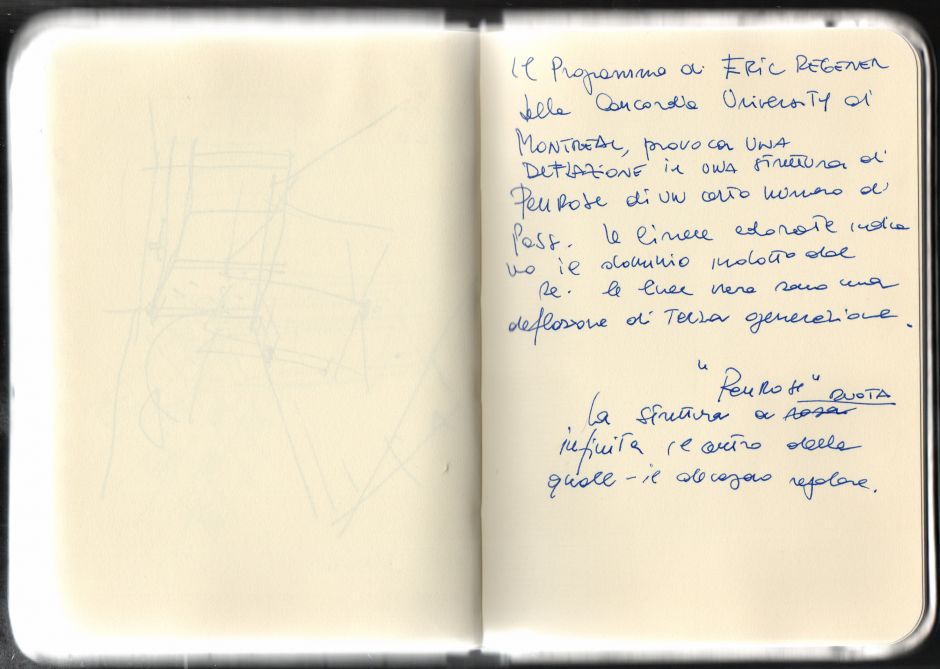 Il Programma di ERIC REGENER
della Concordia University di
MONTREAL, provoca UNA
DEFLAZIONE in UNA struttura di
PENROSE di un certo numero di
Passi. le linee colorate indica
no il dominio indotto dal
Re. le linee nere sono una
deflazione di Terza generazione.
"PENROSE"
La struttura a RUOTA
infinita il centro della
quale - il decagono regolare.